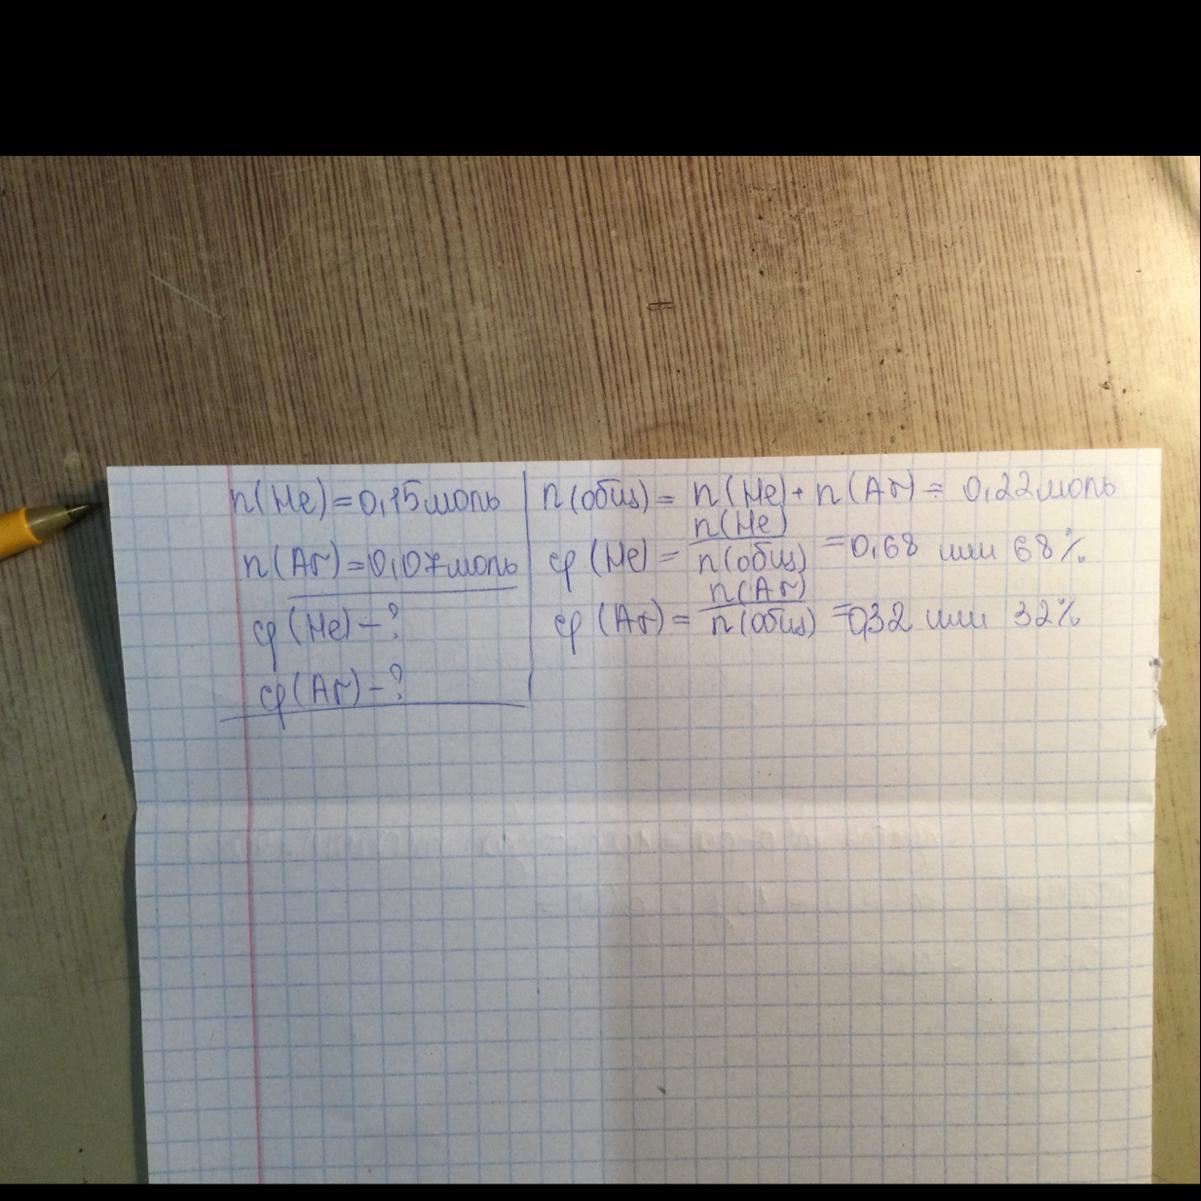 n(He)=0,15моль
n(Ar)=0,07моль
φ(He)-?
φ(Ar)-?
n(общ)= n(He)+n(Ar)= 0,22моль
φ(He)= n(He)/n(общ) =0,68 или 68%
φ(Ar)= n(Ar)/n(общ) =0,32 или 32%